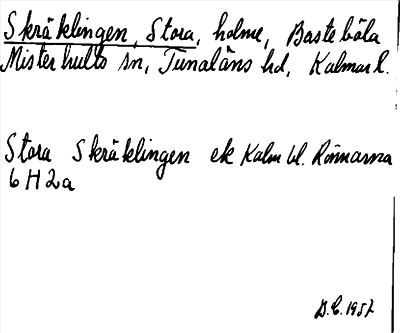 Skräklingen, Stora, holme, Bastebåla
Misterhults sn, Tunaläns hd, Kalmar l.
Stora Skräklingen ek Kalm bl. Rönnarna
6 H 2a
D.E. 1957